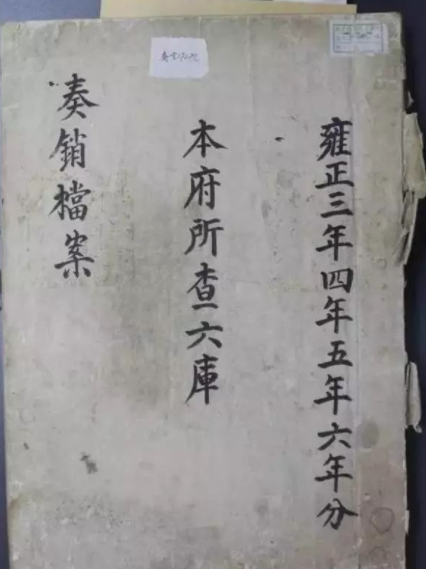 雍正三年四年五年六年分
本府所查六庫
奏銷檔案